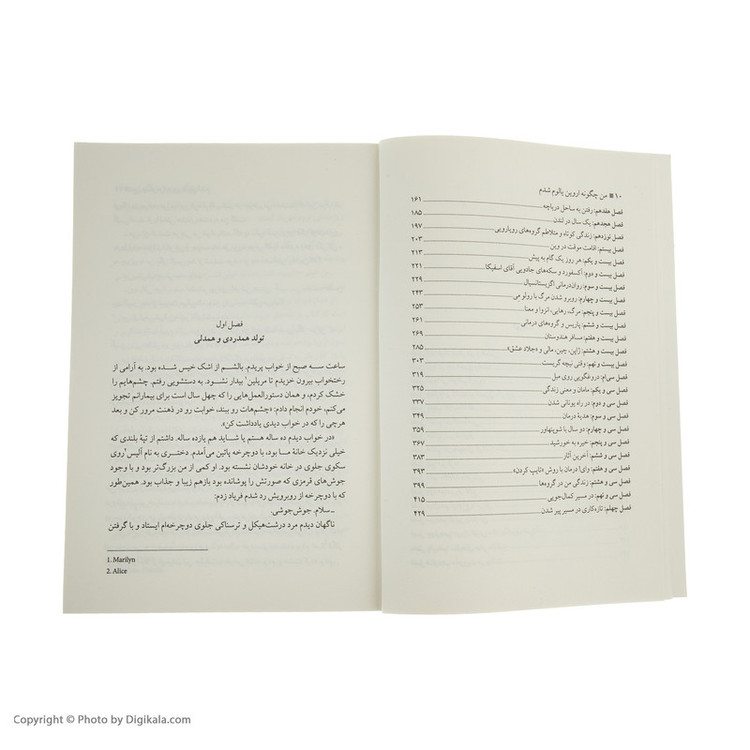 ۱۰ ■ من چگونه اروین یالوم شدم
فصل هفدهم: رفتن به ساحل دریاچه ۱۶۱
فصل هجدهم: یک سال در لندن ۱۸۵
فصل نوزدهم: زندگی کوتاه و متلاطم گروه‌های رویارویی ۱۹۷
فصل بیستم: اقامت موقت در وین ۲۰۳
فصل بیست و یکم: هر روز یک گام به پیش ۲۱۳
فصل بیست و دوم: آکسفورد و سکه‌های جادویی آقای اسفیکا ۲۲۱
فصل بیست و سوم: روان‌درمانی اگزیستانسیال ۲۲۹
فصل بیست و چهارم: روبرو شدن مرگ با رولو می ۲۴۳
فصل بیست و پنجم: مرگ، رهایی، انزوا و معنا ۲۵۳
فصل بیست و ششم: پاریس و گروه‌های درمانی ۲۶۱
فصل بیست و هفتم: مسافر هندوستان ۲۶۹
فصل بیست و هشتم: ژاپن، چین، مالی و «جلاد عشق» ۲۸۵
فصل بیست و نهم: وقتی نیچه گریست ۳۰۳
فصل سی‌ام: دروغگویی روی مبل ۳۱۹
فصل سی و یکم: مامان و معنی زندگی ۳۲۵
فصل سی و دوم: در راه یونانی شدن ۳۳۷
فصل سی و سوم: هدیهٔ درمان ۳۴۹
فصل سی و چهارم: دو سال با شوپنهاور ۳۵۹
فصل سی و پنجم: خیره به خورشید ۳۶۷
فصل سی و ششم: آخرین آثار ۳۸۳
فصل سی و هفتم: وای! درمان با روش «تایپ کردن» ۳۹۳
فصل سی و هشتم: زندگی من در گروه‌ها ۳۹۹
فصل سی و نهم: در مسیر کمال‌جویی ۴۱۵
فصل چهلم: تازه‌کاری در مسیر پیر شدن ۴۲۹
فصل اول
تولد همدردی و همدلی
ساعت سه صبح از خواب پریدم. بالشم از اشک خیس شده بود. به آرامی از
رختخواب بیرون خزیدم تا مریلین۱ بیدار نشود. به دستشویی رفتم. چشم‌هایم را
خشک کردم، و همان دستورالعمل‌هایی را که چهل سال است برای بیمارانم تجویز
می‌کنم، خودم انجام دادم: «چشم‌هات رو ببند، خوابت رو در ذهنت مرور کن و بعد
هرچی را که در خواب دیدی یادداشت کن».
«در خواب دیدم ده ساله هستم یا شاید هم یازده ساله. داشتم از تپهٔ بلندی که
خیلی نزدیک خانهٔ ما بود، با دوچرخه پائین می‌آمدم. دختری به نام آلیس۲ روی
سکوی جلوی در خانه خودشان نشسته بود. او کمی از من بزرگ‌تر بود و با وجود
جوش‌های قرمزی که صورتش را پوشانده بود بازهم زیبا و جذاب بود. همین‌طور
که با دوچرخه از روبرویش رد شدم فریاد زدم:
ـ سلام. جوش‌جوشی.
ناگهان دیدم مرد درشت‌هیکل و ترسناکی جلوی دوچرخه‌ام ایستاد و با گرفتن
1. Marilyn
2. Alice
Copyright © Photo by Digikala.com